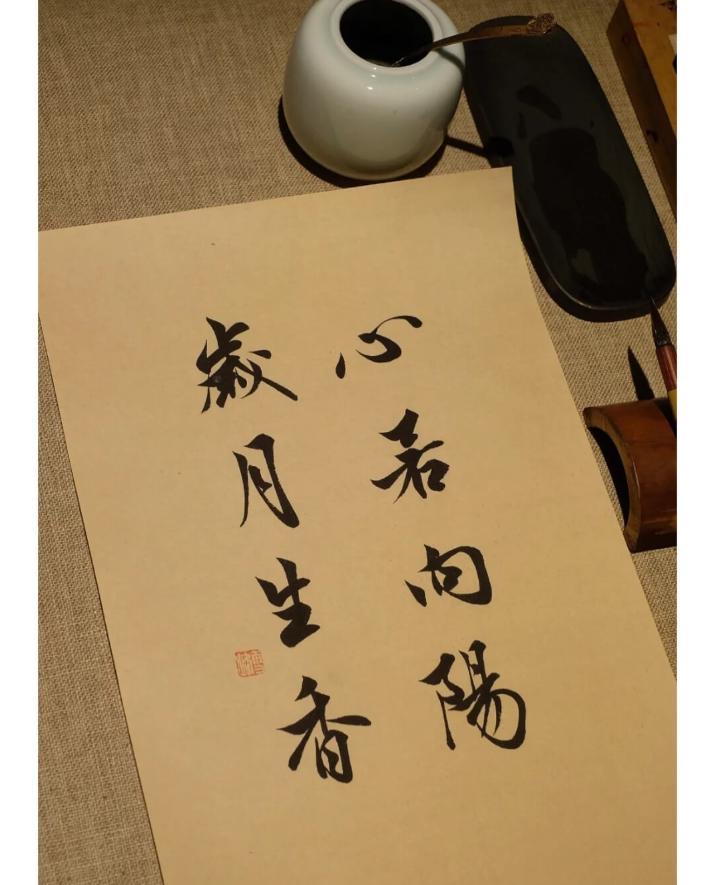 心若向陽
歲月生香